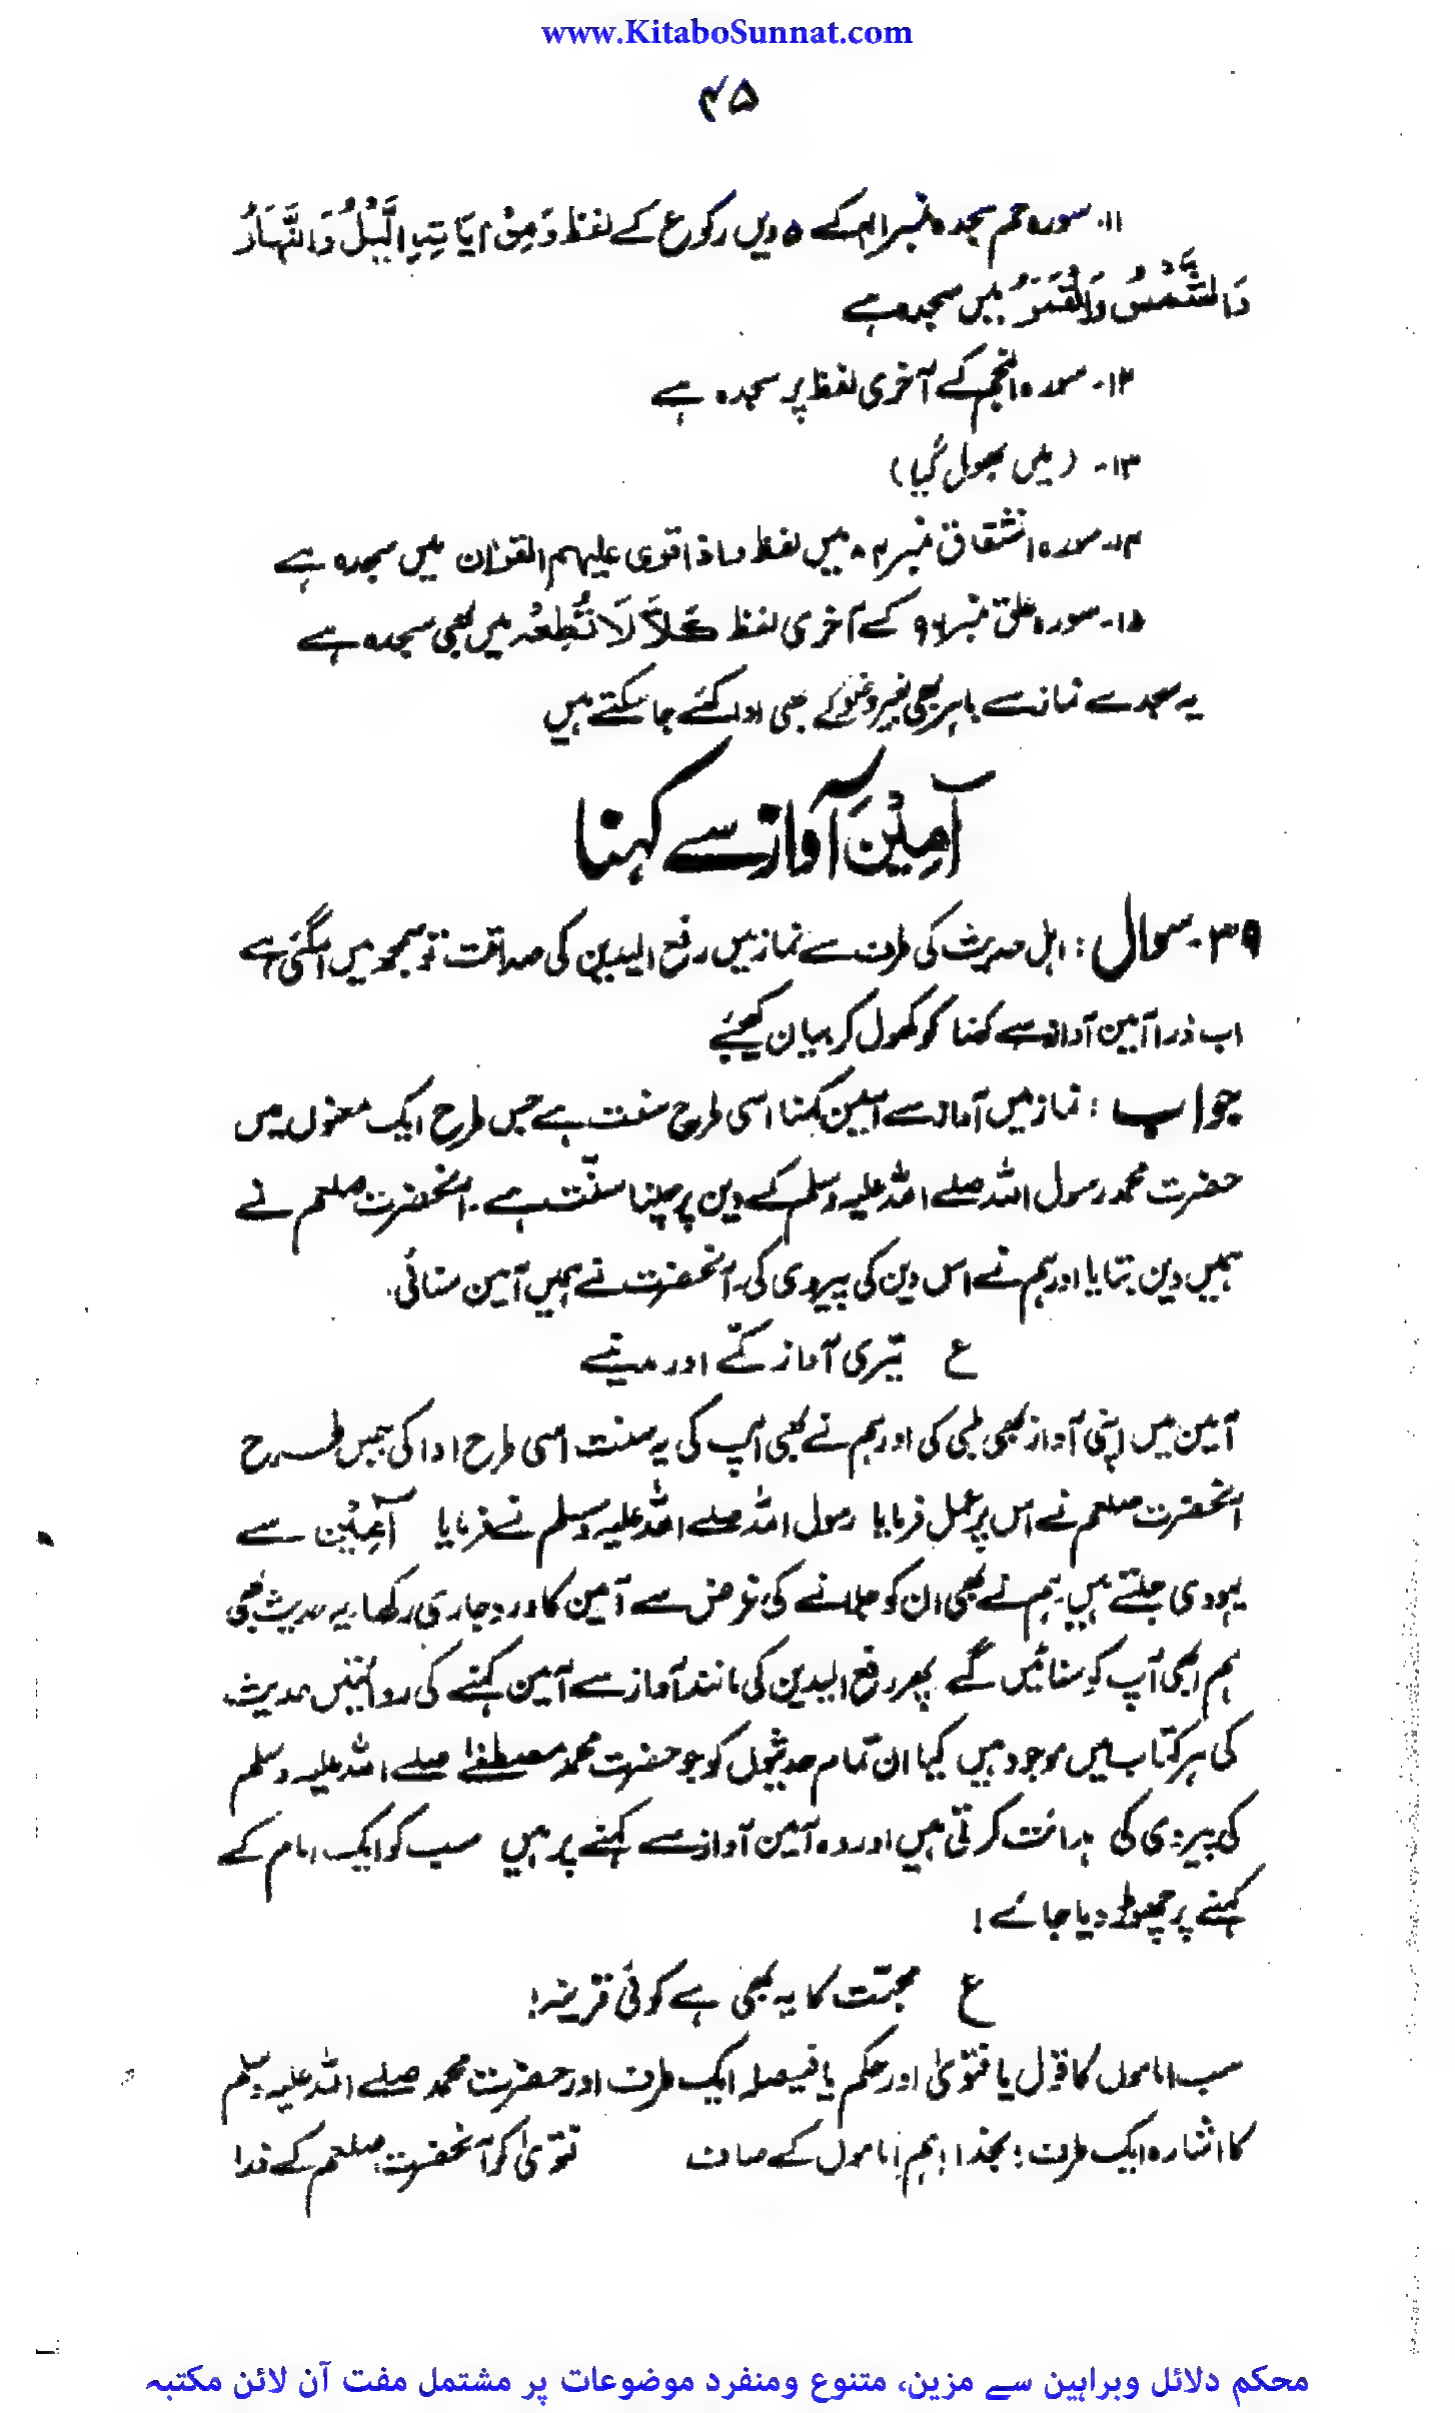 www.KitaboSunnat.com
۴۵
۱۱۔ سورہ حم سجدہ نمبر ۴۱ کے ۵ ویں رکوع کے لفظ وَمِنْ اٰیَاتِہِ الَّیْلُ وَالنَّہَارُ
وَالشَّمْسُ وَالْقَمَرُ میں سجدہ ہے
۱۲۔ سورہ النجم کے آخری لفظ پر سجدہ ہے
۱۳۔ (میں بھول گیا)
۱۴۔ سورہ انشقاق نمبر ۸۴ میں لفظ واذا قری علیہم القرٰان میں سجدہ ہے
۱۵۔ سورہ علق نمبر ۹۶ کے آخری لفظ کَلَّا لَا تُطِعْہُ میں بھی سجدہ ہے
یہ سجدے نماز سے باہر بھی بغیر وضو کے بھی ادا کئے جا سکتے ہیں
آمِیْنَ آواز سے کہنا
۳۹۔ سوال : اہل حدیث کی طرف سے نماز میں رفع الیدین کی صداقت تو سمجھ میں آگئی ہے
اب ذرا آمین آواز سے کہنا کو کھول کر بیان کیجئے
جواب : نماز میں آواز سے آمین کہنا اسی طرح سنت ہے جس طرح ایک معنوں میں
حضرت محمد رسول اللہ صلے اللہ علیہ وسلم کے دین پر چلنا سنّت ہے ۔ آنحضرت صلعم نے
ہمیں دین بتایا اور ہم نے اس دین کی پیروی کی۔ آنحضرت نے ہمیں آمین سنائی۔
ع تیری آواز مکّے اور مدینے
آمین میں اپنی آواز بھی لمبی کی اور ہم نے بھی آپ کی یہ سنت اسی طرح ادا کی جس طرح
آنحضرت صلعم نے اس پر عمل فرمایا رسول اللہ صلے اللہ علیہ وسلم نے فرمایا آمِیْن سے
یہودی جلتے ہیں۔ ہم نے بھی ان کو جلانے کی غرض سے آمین کا ورد جاری رکھا۔ یہ حدیث بھی
ہم ابھی آپ کو سنائیں گے پھر رفع الیدین کی مانند آواز سے آمین کہنے کی روائیتیں حدیث
کی ہر کتاب میں موجود ہیں کیا ان تمام حدیثوں کو جو حضرت محمد مصطفےٰ صلے اللہ علیہ وسلم
کی پیروی کی ہدائت کرتی ہیں اور وہ آمین آواز سے کہنے پر ہیں سب کو ایک امام کے
کہنے پر چھوڑ دیا جائے !
ع محبّت کا یہ بھی ہے کوئی قرینہ!
سب اماموں کا قول یا فتویٰ اور حکم یا فیصلہ ایک طرف اور حضرت محمد صلے اللہ علیہ وسلم
کا اشارہ ایک طرف ؛ بخدا ! ہم اماموں کے صاف فتویٰ کو آنحضرت صلعم کے ذرا
محکم دلائل وبراہین سے مزین، متنوع ومنفرد موضوعات پر مشتمل مفت آن لائن مکتبہ